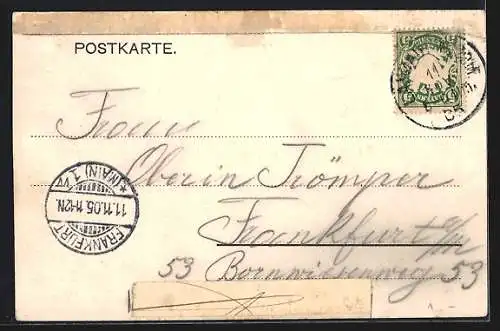 POSTKARTE.
Frau
Oberin Trömper
Frankfurt a/m
53 Bornwiesenweg 53
FRANKFURT
(MAIN) 1
11.11.05.11-12N.